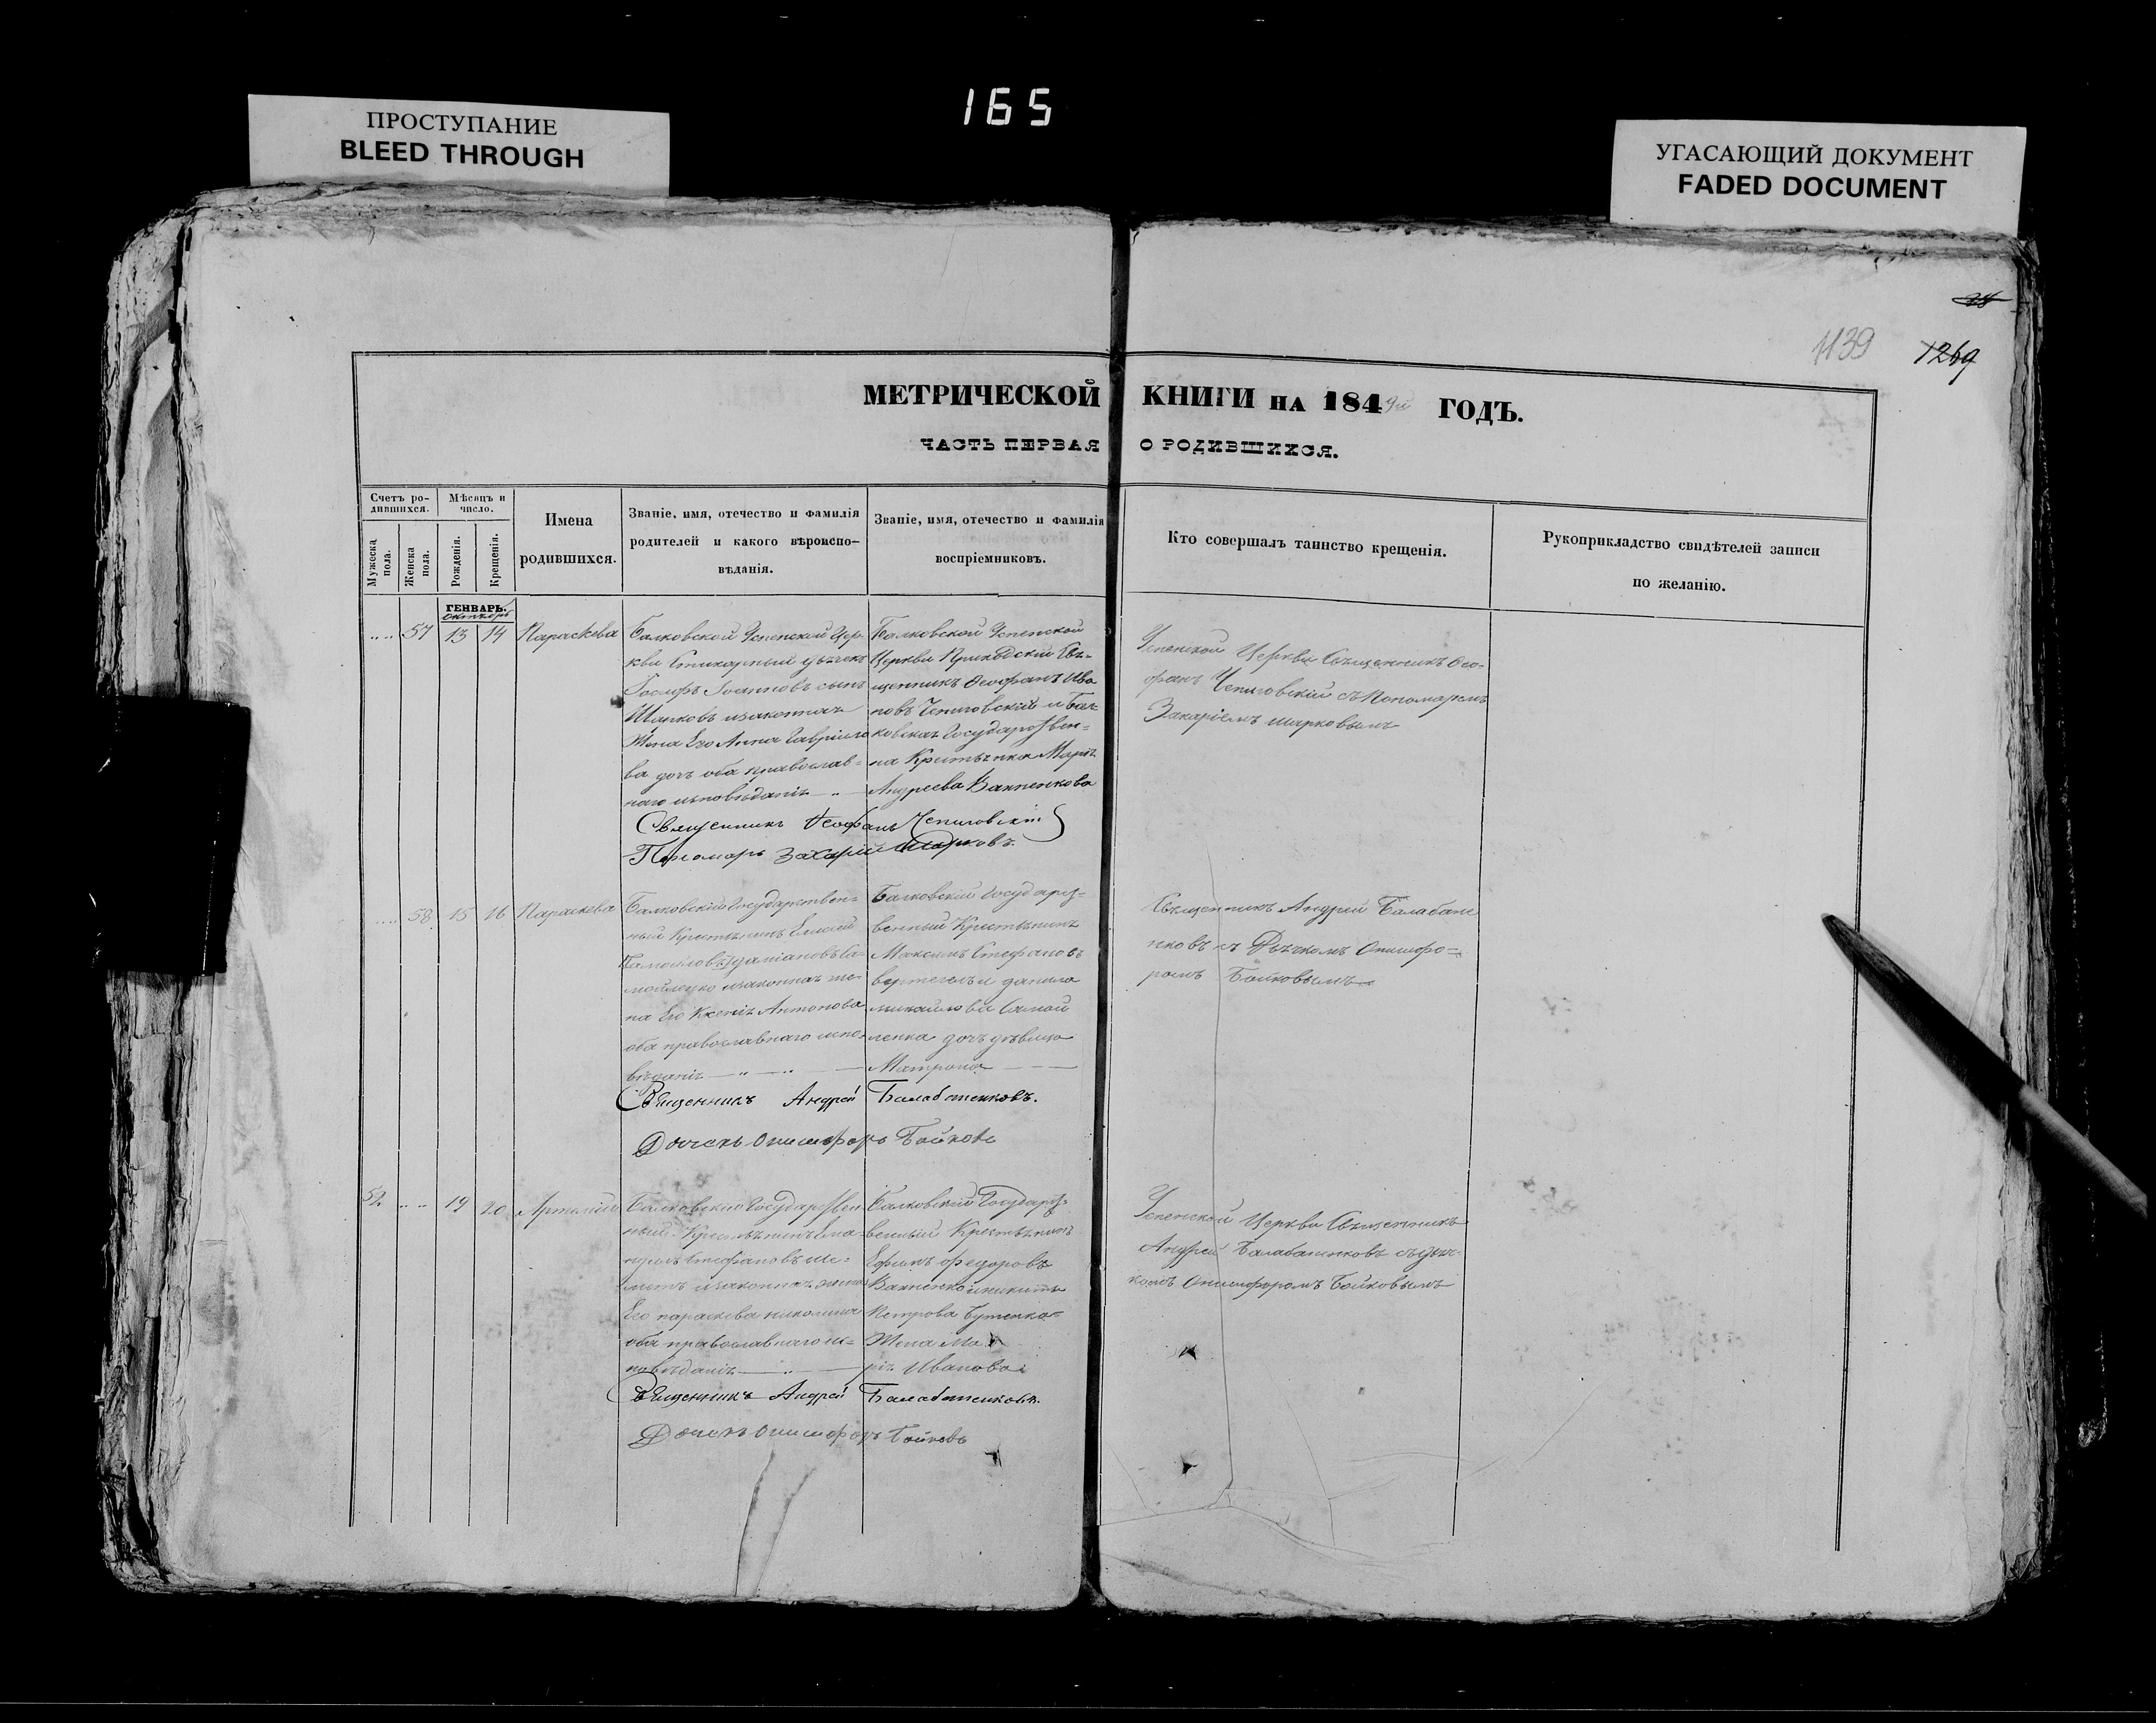 165
ПРОСТУПАНИЕ
BLEED THROUGH
УГАСАЮЩИЙ ДОКУМЕНТ
FADED DOCUMENT
1139
1269
МЕТРИЧЕСКОЙ КНИГИ НА 1849й ГОДЪ.
ЧАСТЬ ПЕРВАЯ О РОДИВШИХСЯ.
Счетъ ро-
дившихся.
Мужеска пола.
Женска пола.
Мѣсяцъ и
число.
Рожденія.
Крещенія.
Имена
родившихся.
Званіе, имя, отечество и фамилія
родителей и какого вѣроиспо-
вѣданія.
Званіе, имя, отечество и фамилія
воспріемниковъ.
Кто совершалъ таинство крещенія.
Рукоприкладство свидѣтелей записи
по желанію.
ГЕНВАРЬ.
октябрь
57 13 14 Параскева
Балковской Успенской Цер-
кви Стихарный дьячекъ
Іосифъ Іоанновъ сынъ
Шарковъ изаконная
Жена Его Анна Гавріило
ва дочь оба православ-
наго исповѣданія
Балковской Успенской
Церкви Приходскій Свя-
щенникъ Ѳеофанъ Ива
новъ Чепиговскій и Бал-
ковская Государствен-
на Крестьянка Марія
Андреева Вакпенкова
Успенской Церкви Священникъ Ѳео-
фанъ Чепиговскій съ Пономаремъ
Захаріемъ Шарковымъ
Священникъ Ѳеофанъ Чепиговскій
Пономарь Захарій Шарковъ.
58 15 16 Параскева
Балковскій Государствен-
ный Крестьянинъ Елисей
изаконная же-
на Его Ксенія Антонова
оба православнаго испо-
вѣданія
Балковскій Государст-
венный Крестьянинъ
Максимъ Стефановъ
и данила
Самой
ленка дочь дѣвица
Матрона
Священникъ Андрей Балабане
нковъ съ Дьячкомъ Онисифо-
ромъ Бойковымъ
Священникъ Андрей Балабаненковъ.
Дьячекъ Онисифоръ Бойковъ
52 19 20 Артемій
Балковскій Государствен
ный Крестьянинъ
Стефановъ
изаконная жена
Его параскева
оба православнаго ис-
повѣданія
Балковскій Государст-
венный Крестьянинъ
Ефимъ Федоровъ
Петрова Бутенка
Жена Ма
рія Иванова
Успенской Церкви Священникъ
Андрей Балабаненковъ съ дьяч-
комъ Онисифоромъ Бойковымъ
Священникъ Андрей Балабаненковъ.
Дьячекъ Онисифоръ Бойковъ